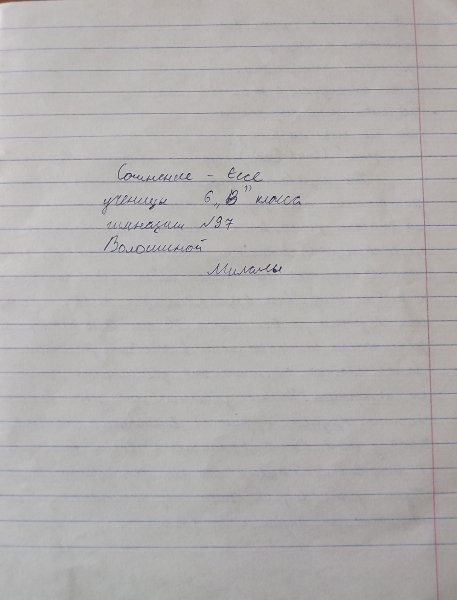 Сочинение - Ессе
ученицы 6 „В" класса
гимназии №97
Волошиной
Миланы